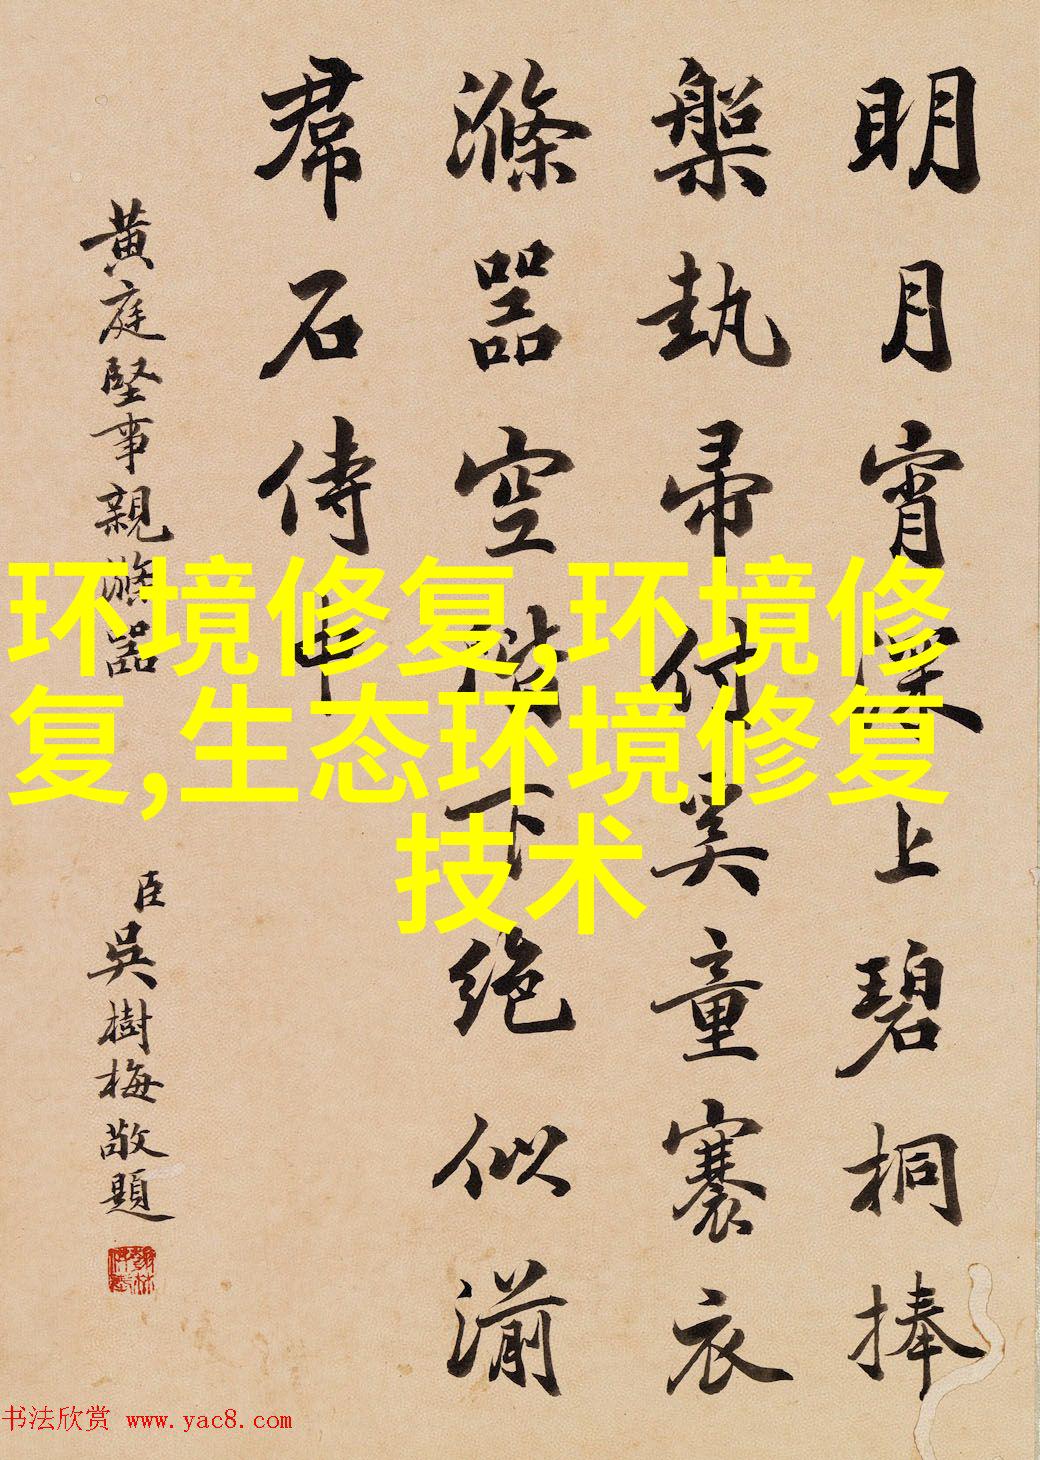 明月宵深上碧桐捧
槃執帚付奚童褰衣
滌器空階下絶似湔
帬石侍中
黃庭堅事親滌器
臣吳樹梅敬題
环境修复,环境修
复,生态环境修复
技术
书法欣赏 www.yac8.com